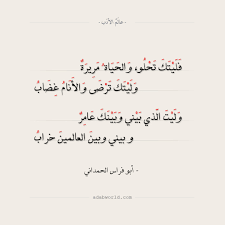 - عالم الأدب -
فَلَيْتَكَ تَحْلُو، وَالحَيَاة ُ مَرِيرَةٌ
وَلَيْتَكَ تَرْضَى وَالأَنَامُ غِضَابُ
وَلَيْتَ الّذي بَيْني وَبَيْنَكَ عَامِرٌ
و بيني وبينَ العالمينَ خرابُ
- أبو فراس الحمداني
adabworld.com